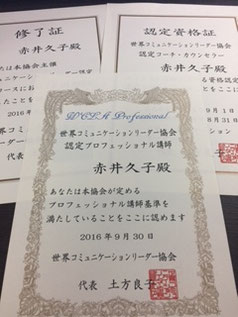 修了証
赤井久子殿
たは本協会主催
認定資格証
世界コミュニケーションリーダー協会
認定コーチ・カウンセラー
赤井久子殿
WCLA Professional
世界コミュニケーションリーダー協会
認定プロフェッショナル講師
赤井久子殿
あなたは本協会が定める
プロフェッショナル講師基準を
満たしていることをここに認めます
2016年9月30日
世界コミュニケーションリーダー協会
代表 土方良子